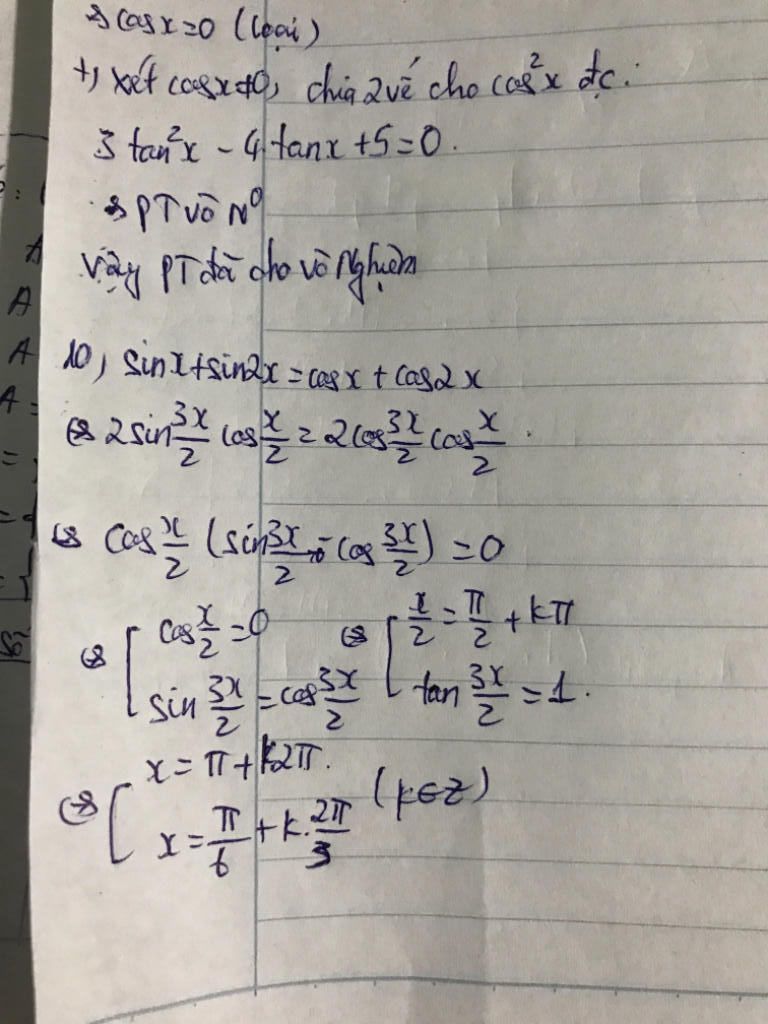 ⇒ cosx=0 (loại)
+, xét cosx≠0, chia 2 vế cho cos²x đc:
3 tan²x - 4 tanx + 5 = 0.
⇒ PT vô N⁰
Vậy PT đã cho vô Nghiệm
10, sinx+sin2x = cosx + cos2x
⇔ 2sin 3x/2 cos x/2 = 2cos 3x/2 cos x/2.
⇔ cos x/2 (sin 3x/2 - cos 3x/2) = 0
⇔ [ cos x/2 = 0 ⇔ [ x/2 = π/2 + kπ
sin 3x/2 = cos 3x/2 tan 3x/2 = 1.
⇔ [ x = π + k2π.
x = π/6 + k. 2π/3 (k∈Z)